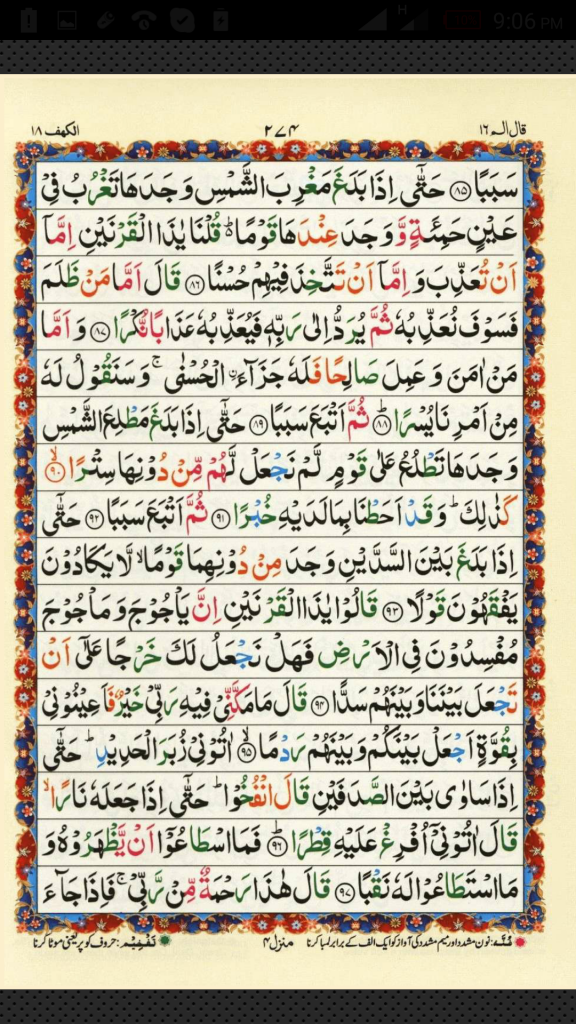 9:06 PM
H
قال الم ١٦
٢٧٤
الكهف ١٨
سَبَبًا ﴿٨٥﴾ حَتّٰۤى اِذَا بَلَغَ مَغْرِبَ الشَّمْسِ وَجَدَهَا تَغْرُبُ فِیْ
عَیْنٍ حَمِئَةٍ وَّ وَجَدَ عِنْدَهَا قَوْمًا ؕ۬ قُلْنَا یٰذَا الْقَرْنَیْنِ اِمَّاۤ
اَنْ تُعَذِّبَ وَ اِمَّاۤ اَنْ تَتَّخِذَ فِیْهِمْ حُسْنًا ﴿٨٦﴾ قَالَ اَمَّا مَنْ ظَلَمَ
فَسَوْفَ نُعَذِّبُهٗ ثُمَّ یُرَدُّ اِلٰى رَبِّهٖ فَیُعَذِّبُهٗ عَذَابًا نُّكْرًا ﴿٨٧﴾ وَ اَمَّا
مَنْ اٰمَنَ وَ عَمِلَ صَالِحًا فَلَهٗ جَزَآءَ ن۟الْحُسْنٰى ۚ وَ سَنَقُوْلُ لَهٗ
مِنْ اَمْرِنَا یُسْرًا ﴿٨٨﴾ؕ ثُمَّ اَتْبَعَ سَبَبًا ﴿٨٩﴾ حَتّٰۤى اِذَا بَلَغَ مَطْلِعَ الشَّمْسِ
وَجَدَهَا تَطْلُعُ عَلٰى قَوْمٍ لَّمْ نَجْعَلْ لَّهُمْ مِّنْ دُوْنِهَا سِتْرًا ﴿٩٠﴾ۙ
كَذٰلِكَ ؕ وَ قَدْ اَحَطْنَا بِمَا لَدَیْهِ خُبْرًا ﴿٩١﴾ ثُمَّ اَتْبَعَ سَبَبًا ﴿٩٢﴾ حَتّٰۤى
اِذَا بَلَغَ بَیْنَ السَّدَّیْنِ وَجَدَ مِنْ دُوْنِهِمَا قَوْمًا ۙ لَّا یَكَادُوْنَ
یَفْقَهُوْنَ قَوْلًا ﴿٩٣﴾ قَالُوْا یٰذَا الْقَرْنَیْنِ اِنَّ یَاْجُوْجَ وَ مَاْجُوْجَ
مُفْسِدُوْنَ فِی الْاَرْضِ فَهَلْ نَجْعَلُ لَكَ خَرْجًا عَلٰۤى اَنْ
تَجْعَلَ بَیْنَنَا وَ بَیْنَهُمْ سَدًّا ﴿٩٤﴾ قَالَ مَا مَكَّنِّیْ فِیْهِ رَبِّیْ خَیْرٌ فَاَعِیْنُوْنِیْ
بِقُوَّةٍ اَجْعَلْ بَیْنَكُمْ وَ بَیْنَهُمْ رَدْمًا ﴿٩٥﴾ۙ اٰتُوْنِیْ زُبَرَ الْحَدِیْدِ ؕ حَتّٰۤى
اِذَا سَاوٰى بَیْنَ الصَّدَفَیْنِ قَالَ انْفُخُوْا ؕ حَتّٰۤى اِذَا جَعَلَهٗ نَارًا ۙ
قَالَ اٰتُوْنِیْۤ اُفْرِغْ عَلَیْهِ قِطْرًا ﴿٩٦﴾ؕ فَمَا اسْطَاعُوْۤا اَنْ یَّظْهَرُوْهُ وَ
مَا اسْتَطَاعُوْا لَهٗ نَقْبًا ﴿٩٧﴾ قَالَ هٰذَا رَحْمَةٌ مِّنْ رَّبِّیْ ۚ فَاِذَا جَآءَ
غُنّہ: نون مشدد اور میم مشدد کی آواز کو ایک الف کے برابر لمبا کرنا
منزل ۴
تَفْخِیْم: حروف کو پُر یعنی موٹا کرنا